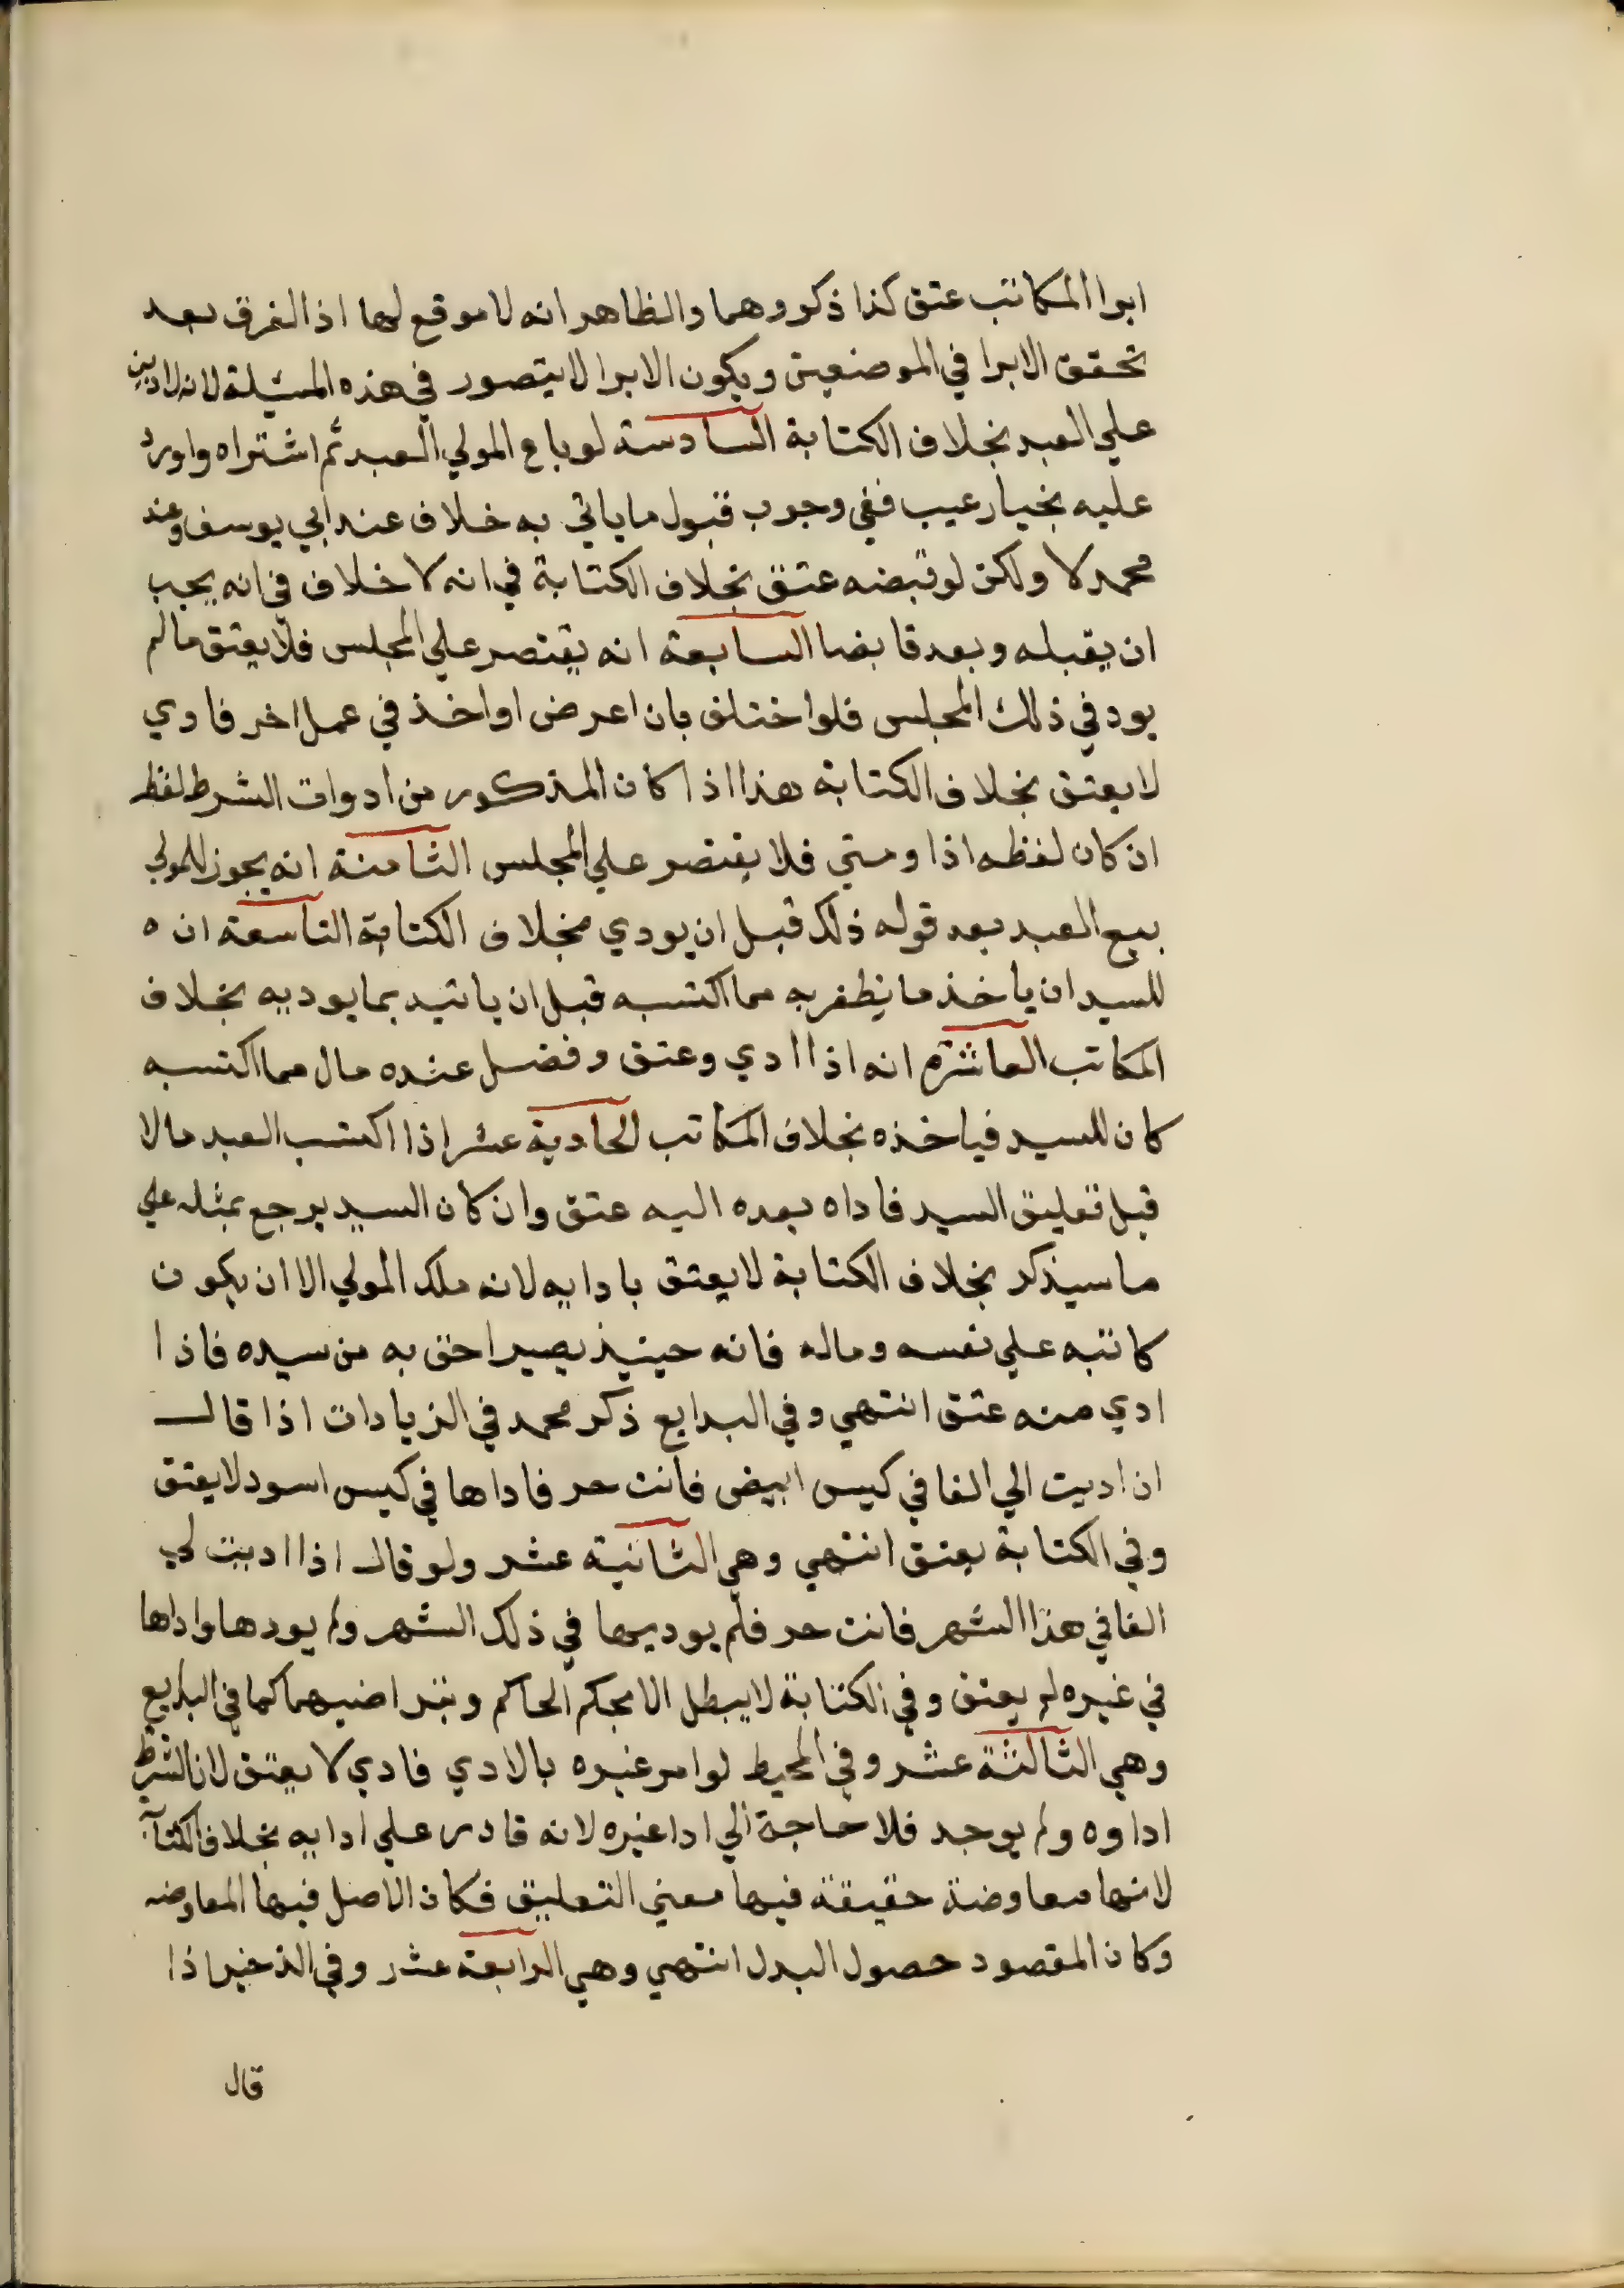 ابرا المكاتب عتق كذا ذكروهما والظاهر انه لا موقع لها اذ الفرق بعد
تحقق الابرا في الموضعين ويكون الابرا لا يتصور في هذه المسئلة لانه لا دين
علي العبد بخلاف الكتابة السادسة لو باع المولي العبد ثم اشتراه واورد
عليه بخيار عيب ففي وجوب قبول ما ياتي به خلاف عند ابي يوسف وعند
محمد لا ولكن لو قبضه عتق بخلاف الكتابة في انه لا خلاف في انه يجب
ان يقبله ويعد قابضا السابعة انه يقتصر علي المجلس فلا يعتق ما لم
يود في ذلك المجلس فلو اختلف بان اعرض او اخذ في عمل اخر فادي
لا يعتق بخلاف الكتابة هذا اذا كان المذكور من ادوات الشرط لفظ
ان كان لفظه اذا ومتي فلا يقتصر علي المجلس الثامنة انه يجوز للمولي
بيع العبد بعد قوله ذلك قبل ان يودي بخلاف الكتابة التاسعة ان ه
للسيد ان ياخذ ما يظفر به مما اكتسبه قبل ان ياتيه بما يوديه بخلاف
المكاتب العاشرة انه اذا ادي وعتق وفضل عنده مال مما اكتسبه
كان للسيد فياخذه بخلاف المكاتب الحادية عشر اذا اكتسب العبد مالا
قبل تعليق السيد فاداه بعده اليه عتق وان كان السيد يرجع بمثله علي
ما سيذكر بخلاف الكتابة لا يعتق بادايه لانه ملك المولي الا ان يكون
كاتبه علي نفسه وماله فانه حينيذ يصير احق به من سيده فاذا
ادي منه عتق انتهي وفي البدايع ذكر محمد في الزيادات اذا قال
ان اديت الي الفا في كيس ابيض فانت حر فاداها في كيس اسود لا يعتق
وفي الكتابة يعتق انتهي وهي الثانية عشر ولو قال اذا اديت لي
الفا في هذا الشهر فانت حر فلم يوديها في ذلك الشهر ولم يودها واداها
في غيره لم يعتق وفي الكتابة لا يبطل الا بحكم الحاكم وبتراضيهما كما في البدايع
وهي الثالثة عشر وفي المحيط لو امر غيره بالادي فادي لا يعتق لان الشرط
اداوه ولم يوجد فلا حاجة الي ادا غيره لانه قادر علي ادايه بخلاف الكتابة
لانها معاوضة حقيقة فيها معني التعليق فكان الاصل فيها المعاوضه
وكان المقصود حصول البدل انتهي وهي الرابعة عشر وفي الذخيرا ذا
قال